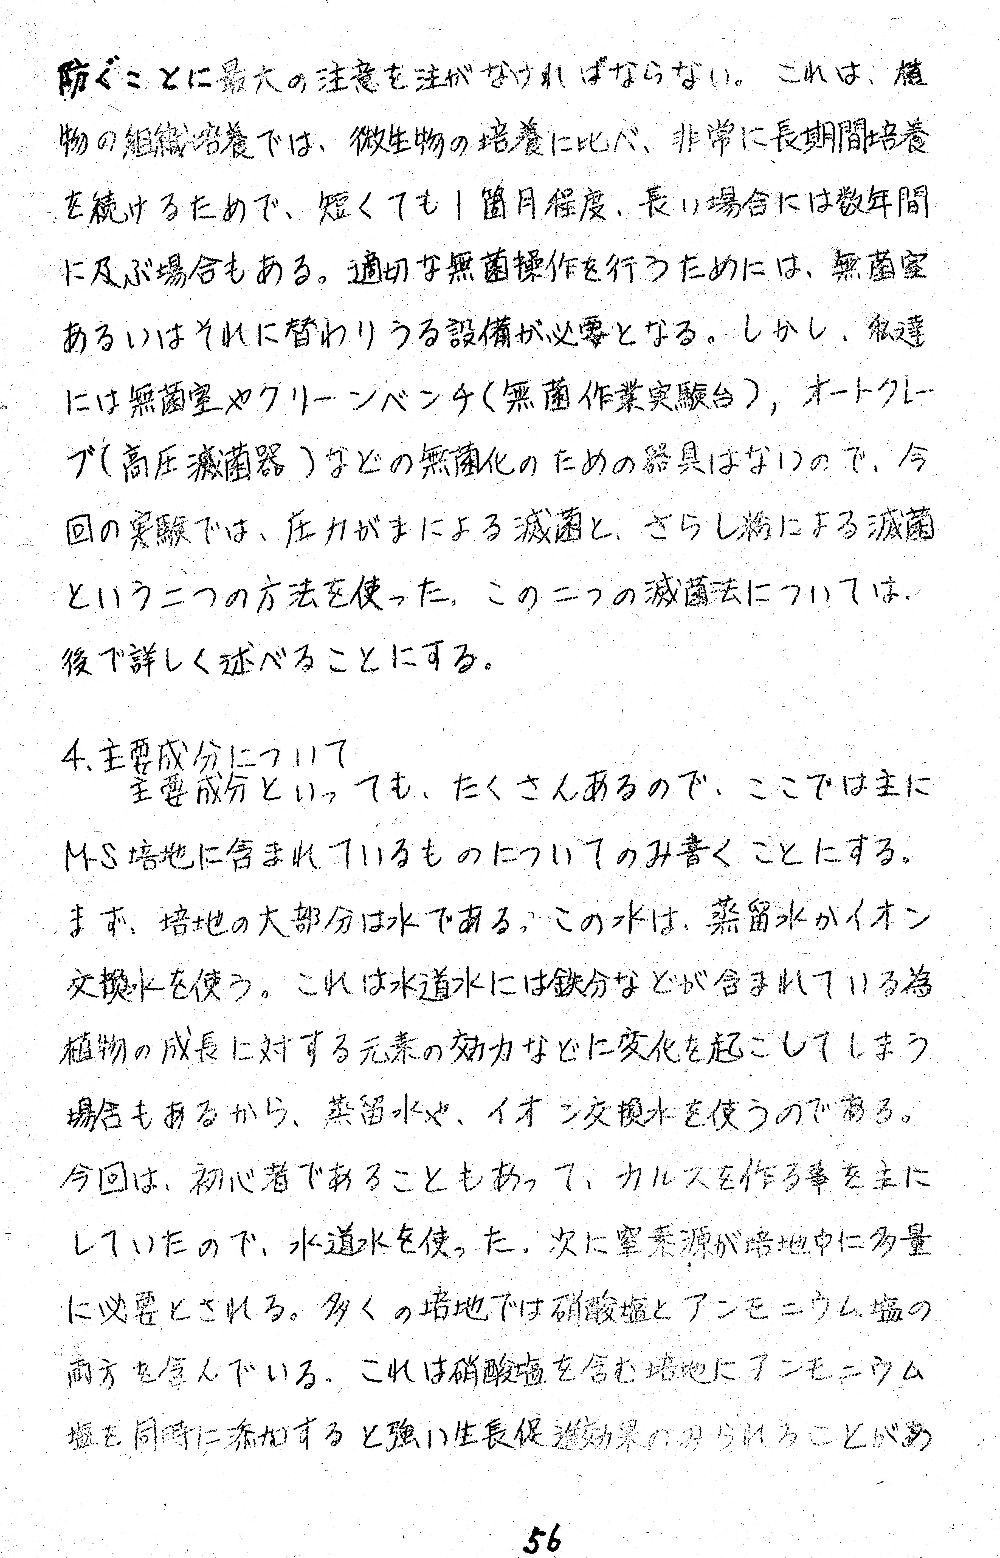 防ぐことに最大の注意を注がなければならない。これは、植
物の組織培養では、微生物の培養に比べ、非常に長期間培養
を続けるためで、短くても1箇月程度、長い場合には数年間
に及ぶ場合もある。適切な無菌操作を行うためには、無菌室
あるいはそれに替わりうる設備が必要となる。しかし、私達
には無菌室やクリーンベンチ(無菌作業実験台), オートクレー
ブ(高圧滅菌器)などの無菌化のための器具はないので、今
回の実験では、圧力がまによる滅菌と、さらし粉による滅菌
という二つの方法を使った。この二つの滅菌法については、
後で詳しく述べることにする。
4.主要成分について
主要成分といっても、たくさんあるので、ここでは主に
M-S培地に含まれているものについてのみ書くことにする。
まず、培地の大部分は水である。この水は、蒸留水かイオン
交換水を使う。これは水道水には鉄分などが含まれている為
植物の成長に対する元素の効力などに変化を起こしてしまう
場合もあるから、蒸留水や、イオン交換水を使うのである。
今回は、初心者であることもあって、カルスを作る事を主に
していたので、水道水を使った。次に窒素源が培地中に多量
に必要とされる。多くの培地では硝酸塩とアンモニウム塩の
両方を含んでいる。これは硝酸塩を含む培地にアンモニウム
塩を同時に添加すると強い生長促進効果のみられることがあ
56